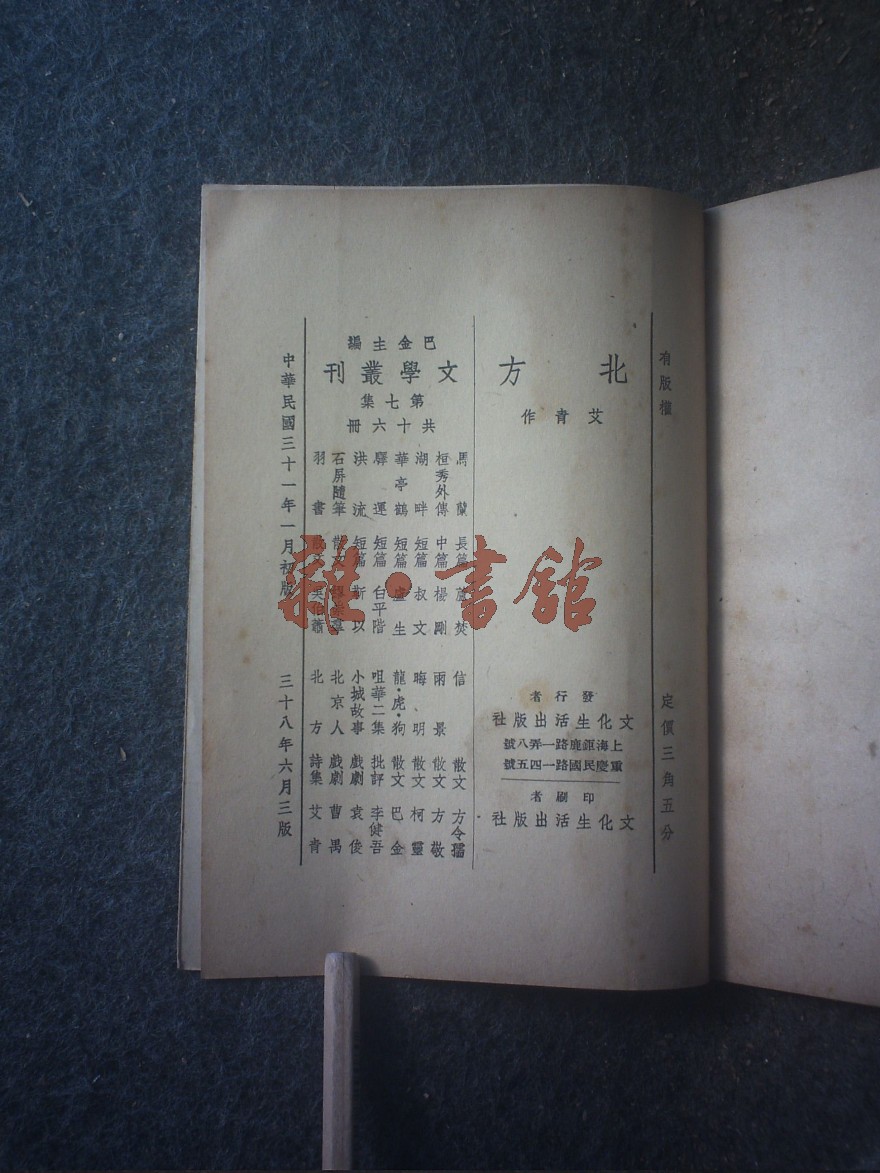 有版權 定價三角五分
北方
艾青作
發行者
文化生活出版社
上海鉅鹿路一弄八號
重慶民國路一四五號
印刷者
文化生活出版社
巴金主編
文學叢刊
第七集
共十六冊
馬蘭 長篇 蘆焚
桓秀外傳 中篇 楊剛
湖畔 短篇 叔文
華亭鶴 短篇 盧生
驛運 短篇 白平階
洪流 短篇 靳以
石屏隨筆 散文 繆崇羣
羽書 散文 吳伯蕭
信 散文 方令孺
雨景 散文 方敬
晦明 散文 柯靈
龍·虎·狗 散文 巴金
咀華二集 批評 李健吾
小城故事 戲劇 袁俊
北京人 戲劇 曹禺
北方 詩集 艾青
中華民國三十一年一月初版 三十八年六月三版
雜·書館